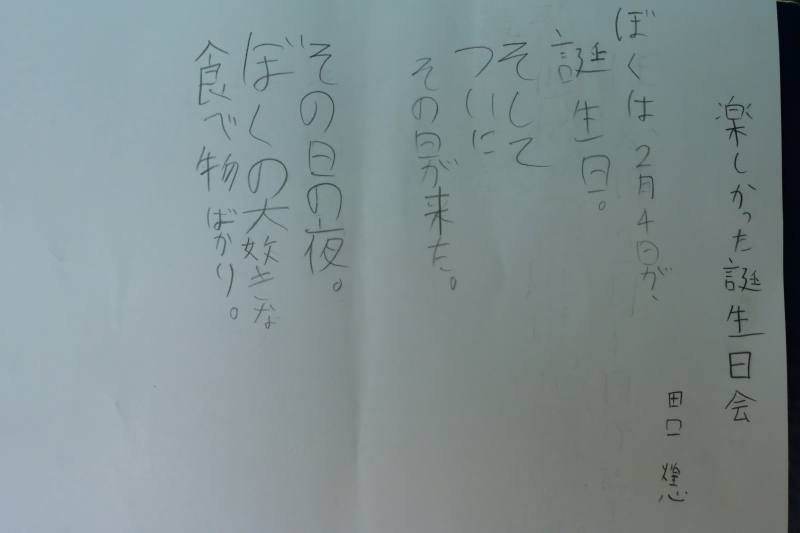 楽しかった誕生日会
田口 煌心
ぼくは、2月4日が、
誕生日。
そして
ついに
その日が来た。
その日の夜。
ぼくの大好きな
食べ物ばかり。